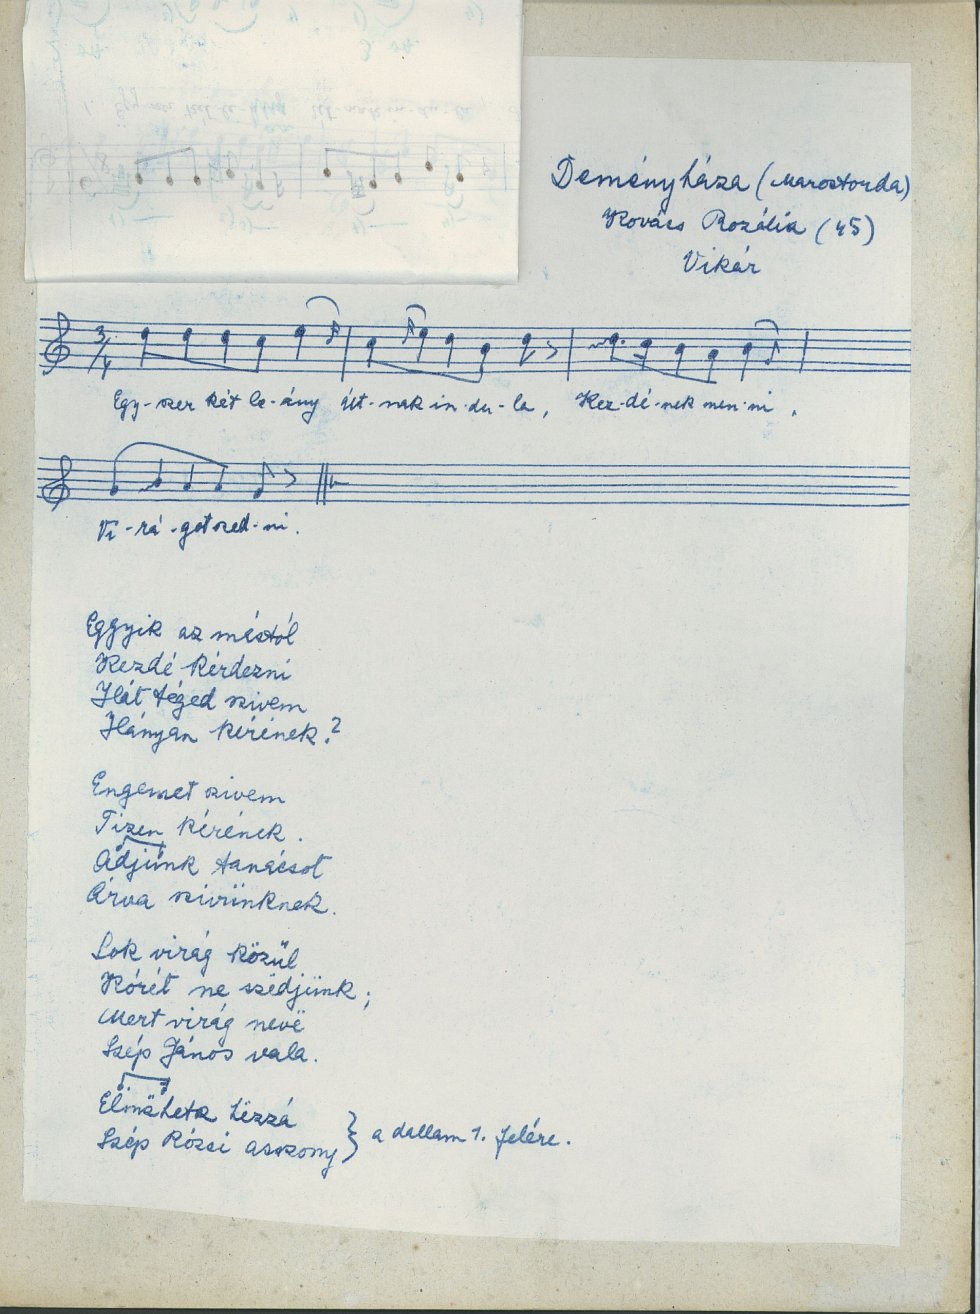 Deményháza (Marostorda)
Kovács Rozália (45)
Vikár
3/4
Egy-szer két le-ány Út-nak in-du-la, Kez-dé-nek men-ni,
Vi-rá-got szed-ni.
Eggyik az mástól
Kezdé kérdezni
Hát téged szivem
Hányan kérének?
Engemet szivem
Tizen kérének.
Adjunk tanácsot
Árva szivünknek.
Sok virág közül
Kórét ne szédjünk;
Mert virág nevë
Szép János vala.
Elmëhetsz hëzzá
Szép Rózsi asszony } a dallam 1. felére.